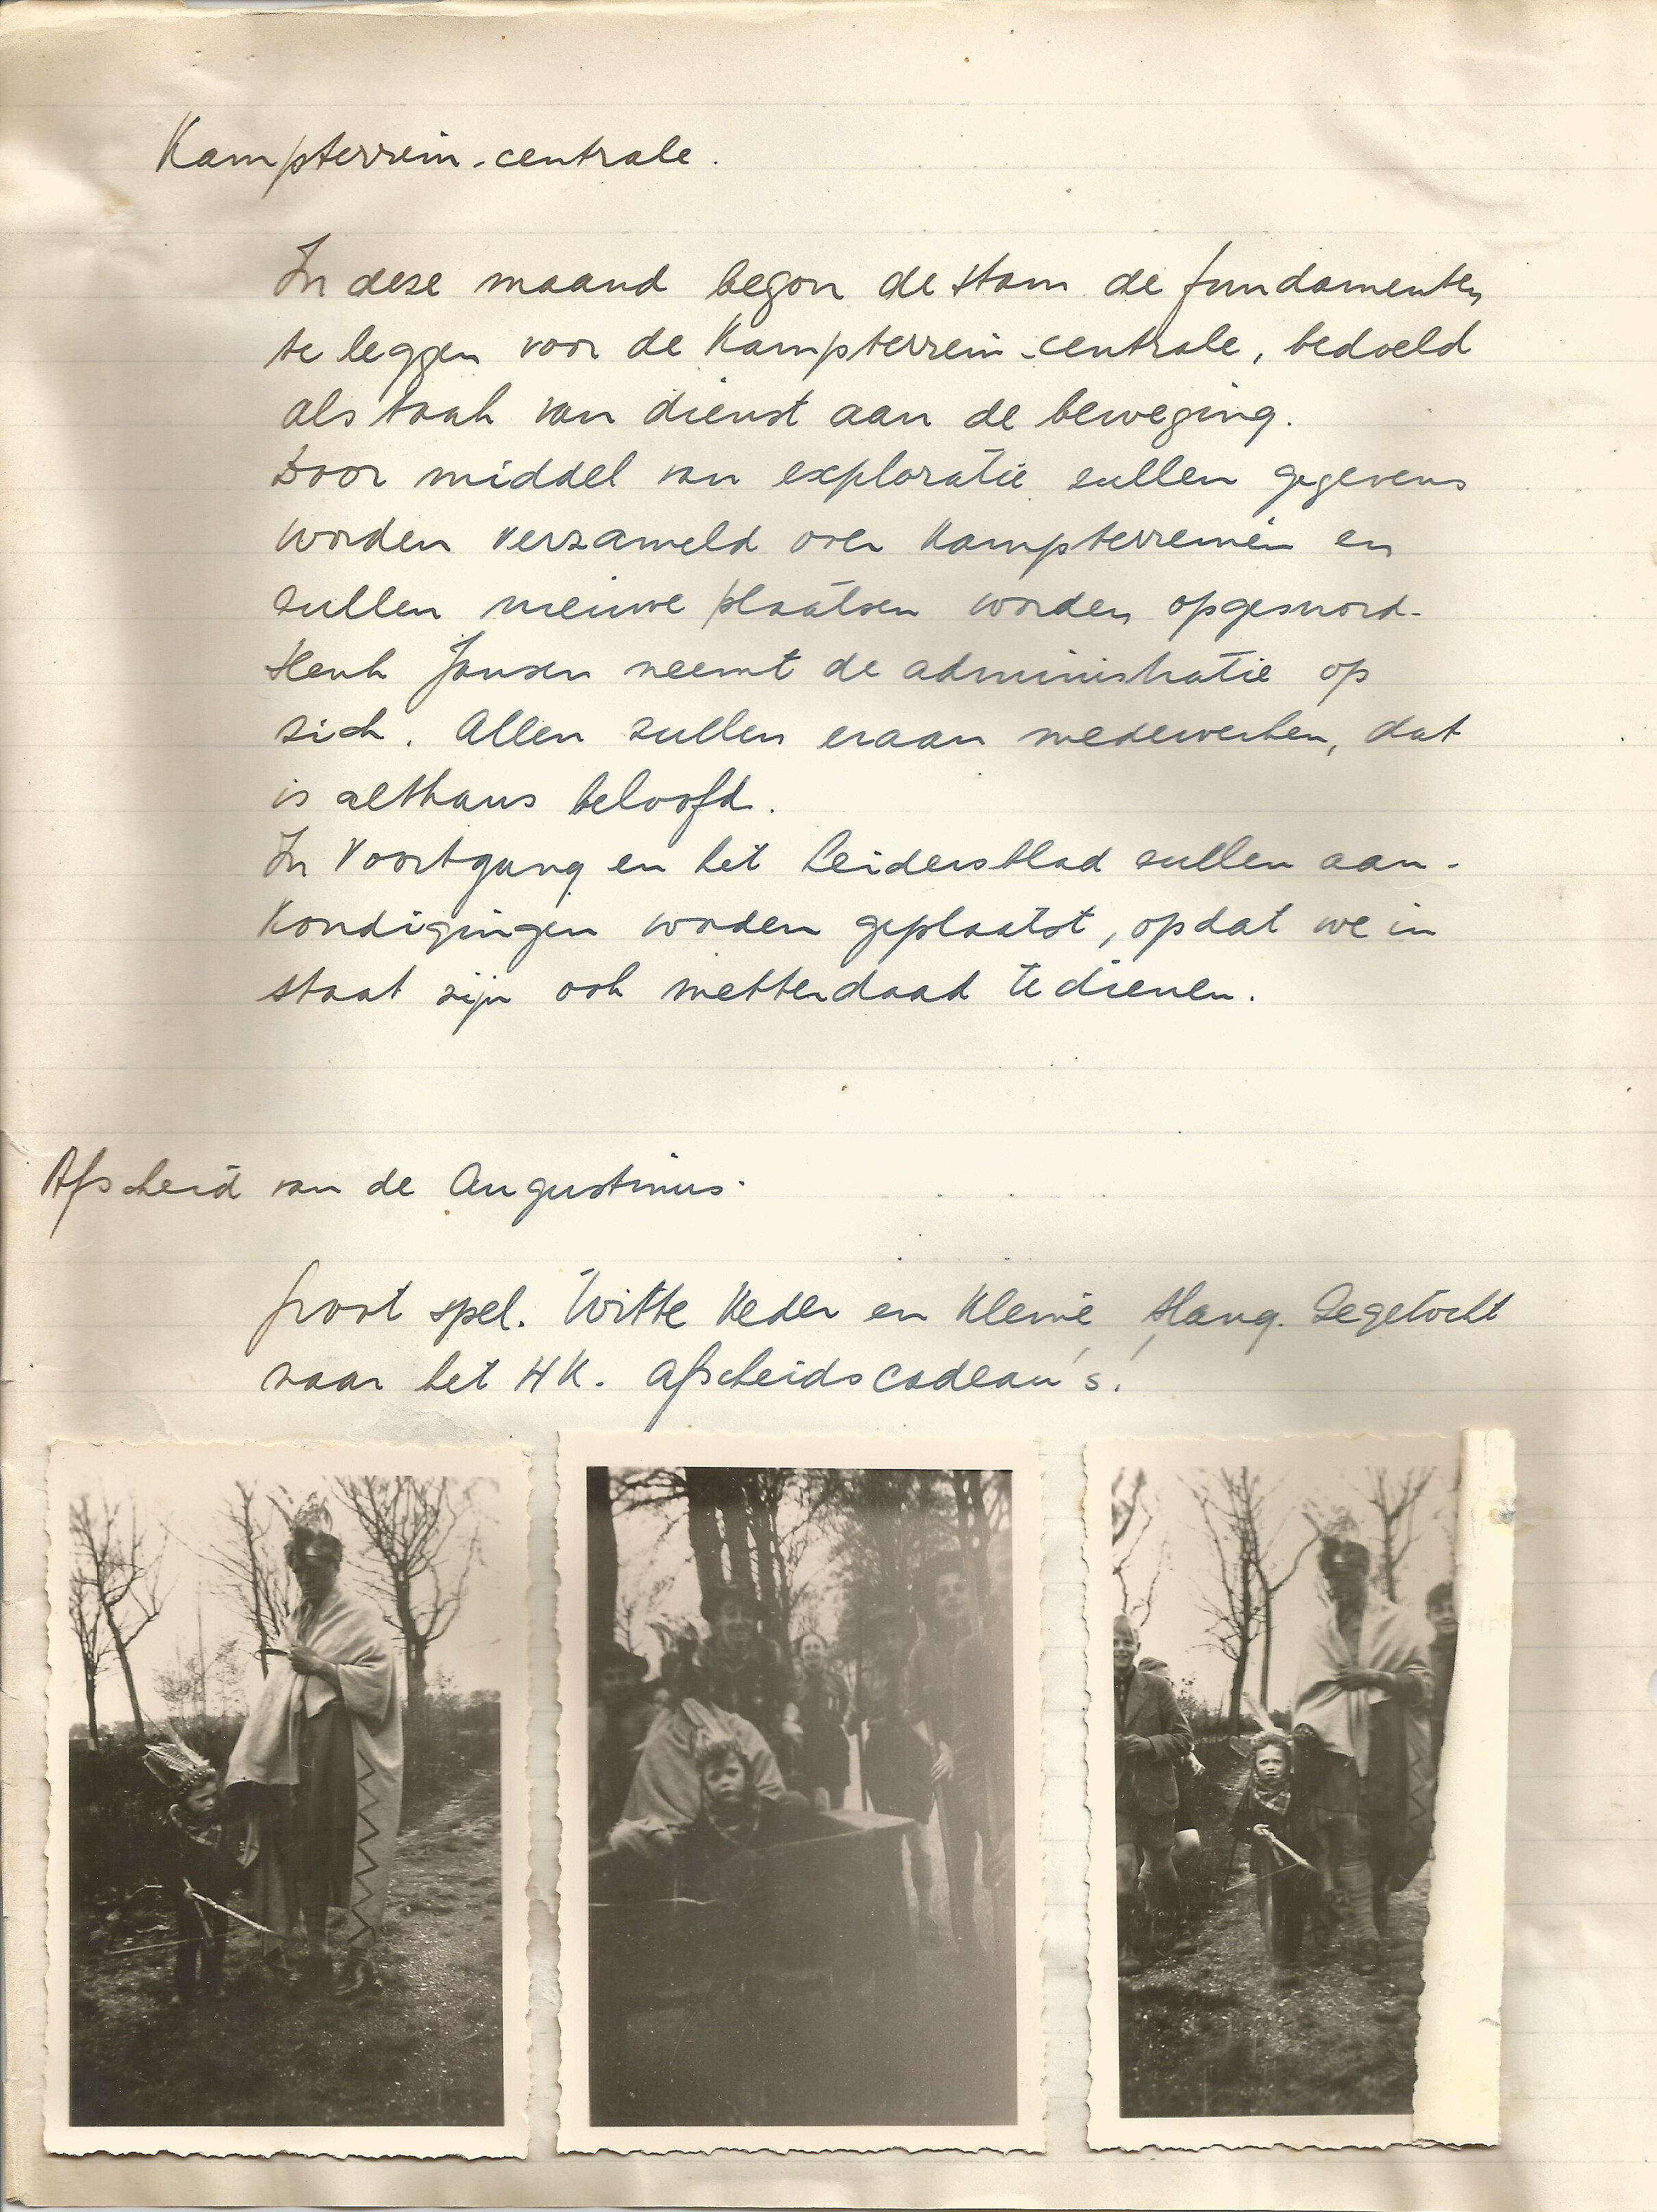 Kampterrein-centrale.
In deze maand begon de stam de fundamenten
te leggen voor de Kampterrein-centrale, bedoeld
als taak van dienst aan de beweging.
Door middel van exploratie zullen gegevens
worden verzameld over kampterreinen en
zullen nieuwe plaatsen worden opgesnord.
Henk Jansen neemt de administratie op
zich. Allen zullen eraan medewerken, dat
is althans beloofd.
In Voortgang en het Leidersblad zullen aan-
kondigingen worden geplaatst, opdat we in
staat zijn ook metterdaad te dienen.
Afscheid van de Augustinus.
Groot spel. Witte Veder en Kleine Slang. Zegetocht
naar het HK. Afscheidscadeau's!